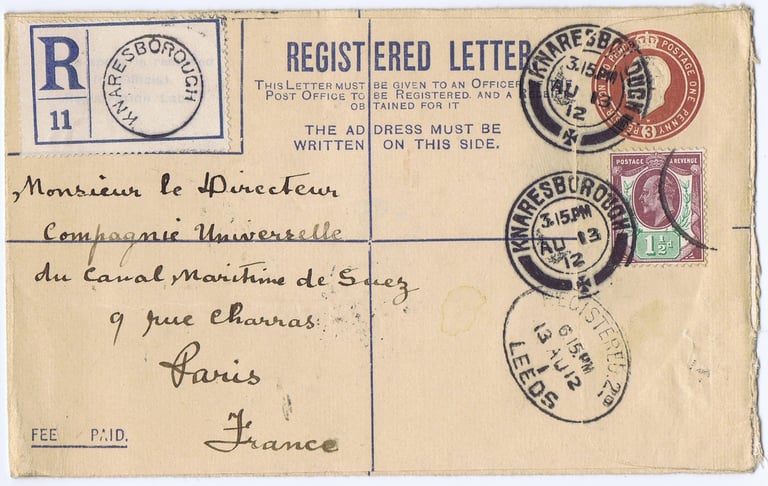 R
11
KNARESBOROUGH
REGISTERED LETTER
THIS LETTER MUST BE GIVEN TO AN OFFICER
POST OFFICE TO BE REGISTERED, AND A
OBTAINED FOR IT
THE ADDRESS MUST BE
WRITTEN ON THIS SIDE.
KNARESBOROUGH
3.15PM
AU 13
12
POSTAGE ONE PENNY
3
POSTAGE & REVENUE
1½d
KNARESBOROUGH
3.15.PM
AU 13
12
REGISTERED. 2
6 15.PM
13 AU 12
1
LEEDS
Monsieur le Directeur
Compagnie Universelle
du Canal Maritime de Suez
9 rue Charras
Paris
France
FEE PAID.